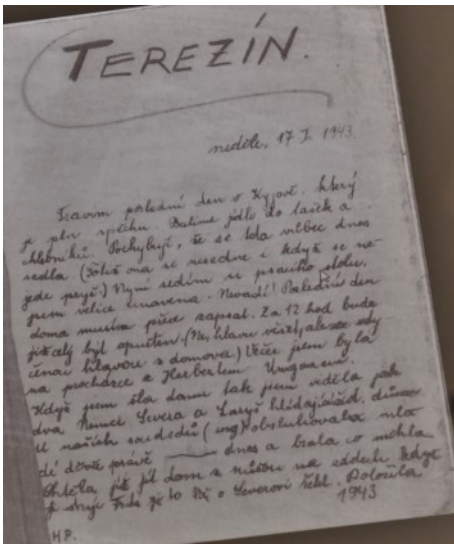 TEREZÍN.
neděle, 17 I. 1943
Travim poslední den v Kyjově, který
je plný spěchu. Balíme jídlo do tašek a
chlebníků. Pochybuji, že se teta vůbec dnes
sedla (Totiž ona si nesedne i když se ne-
jede pryč.) Nyní sedím u psacího stolu,
jsem velice unavena. Nevadí! Poslední den
doma musím přece zapsat. Za 12 hod bude
již celý byt opuštěn. (Ne, hlavu věšet, ale se vždy
hlavou z domova.) Večer jsem byla
na procházce s Herbertem Ungarem.
Když jsem šla domů tak jsem viděla jak
dva Němci Severa a hlídají
U našich sousedů obsluhovala mla-
dé děvče právě dnes a brala co mohla
Chtěla jít dom z na sádech když
je to o Severovi řekl. Položila
1943
HP.